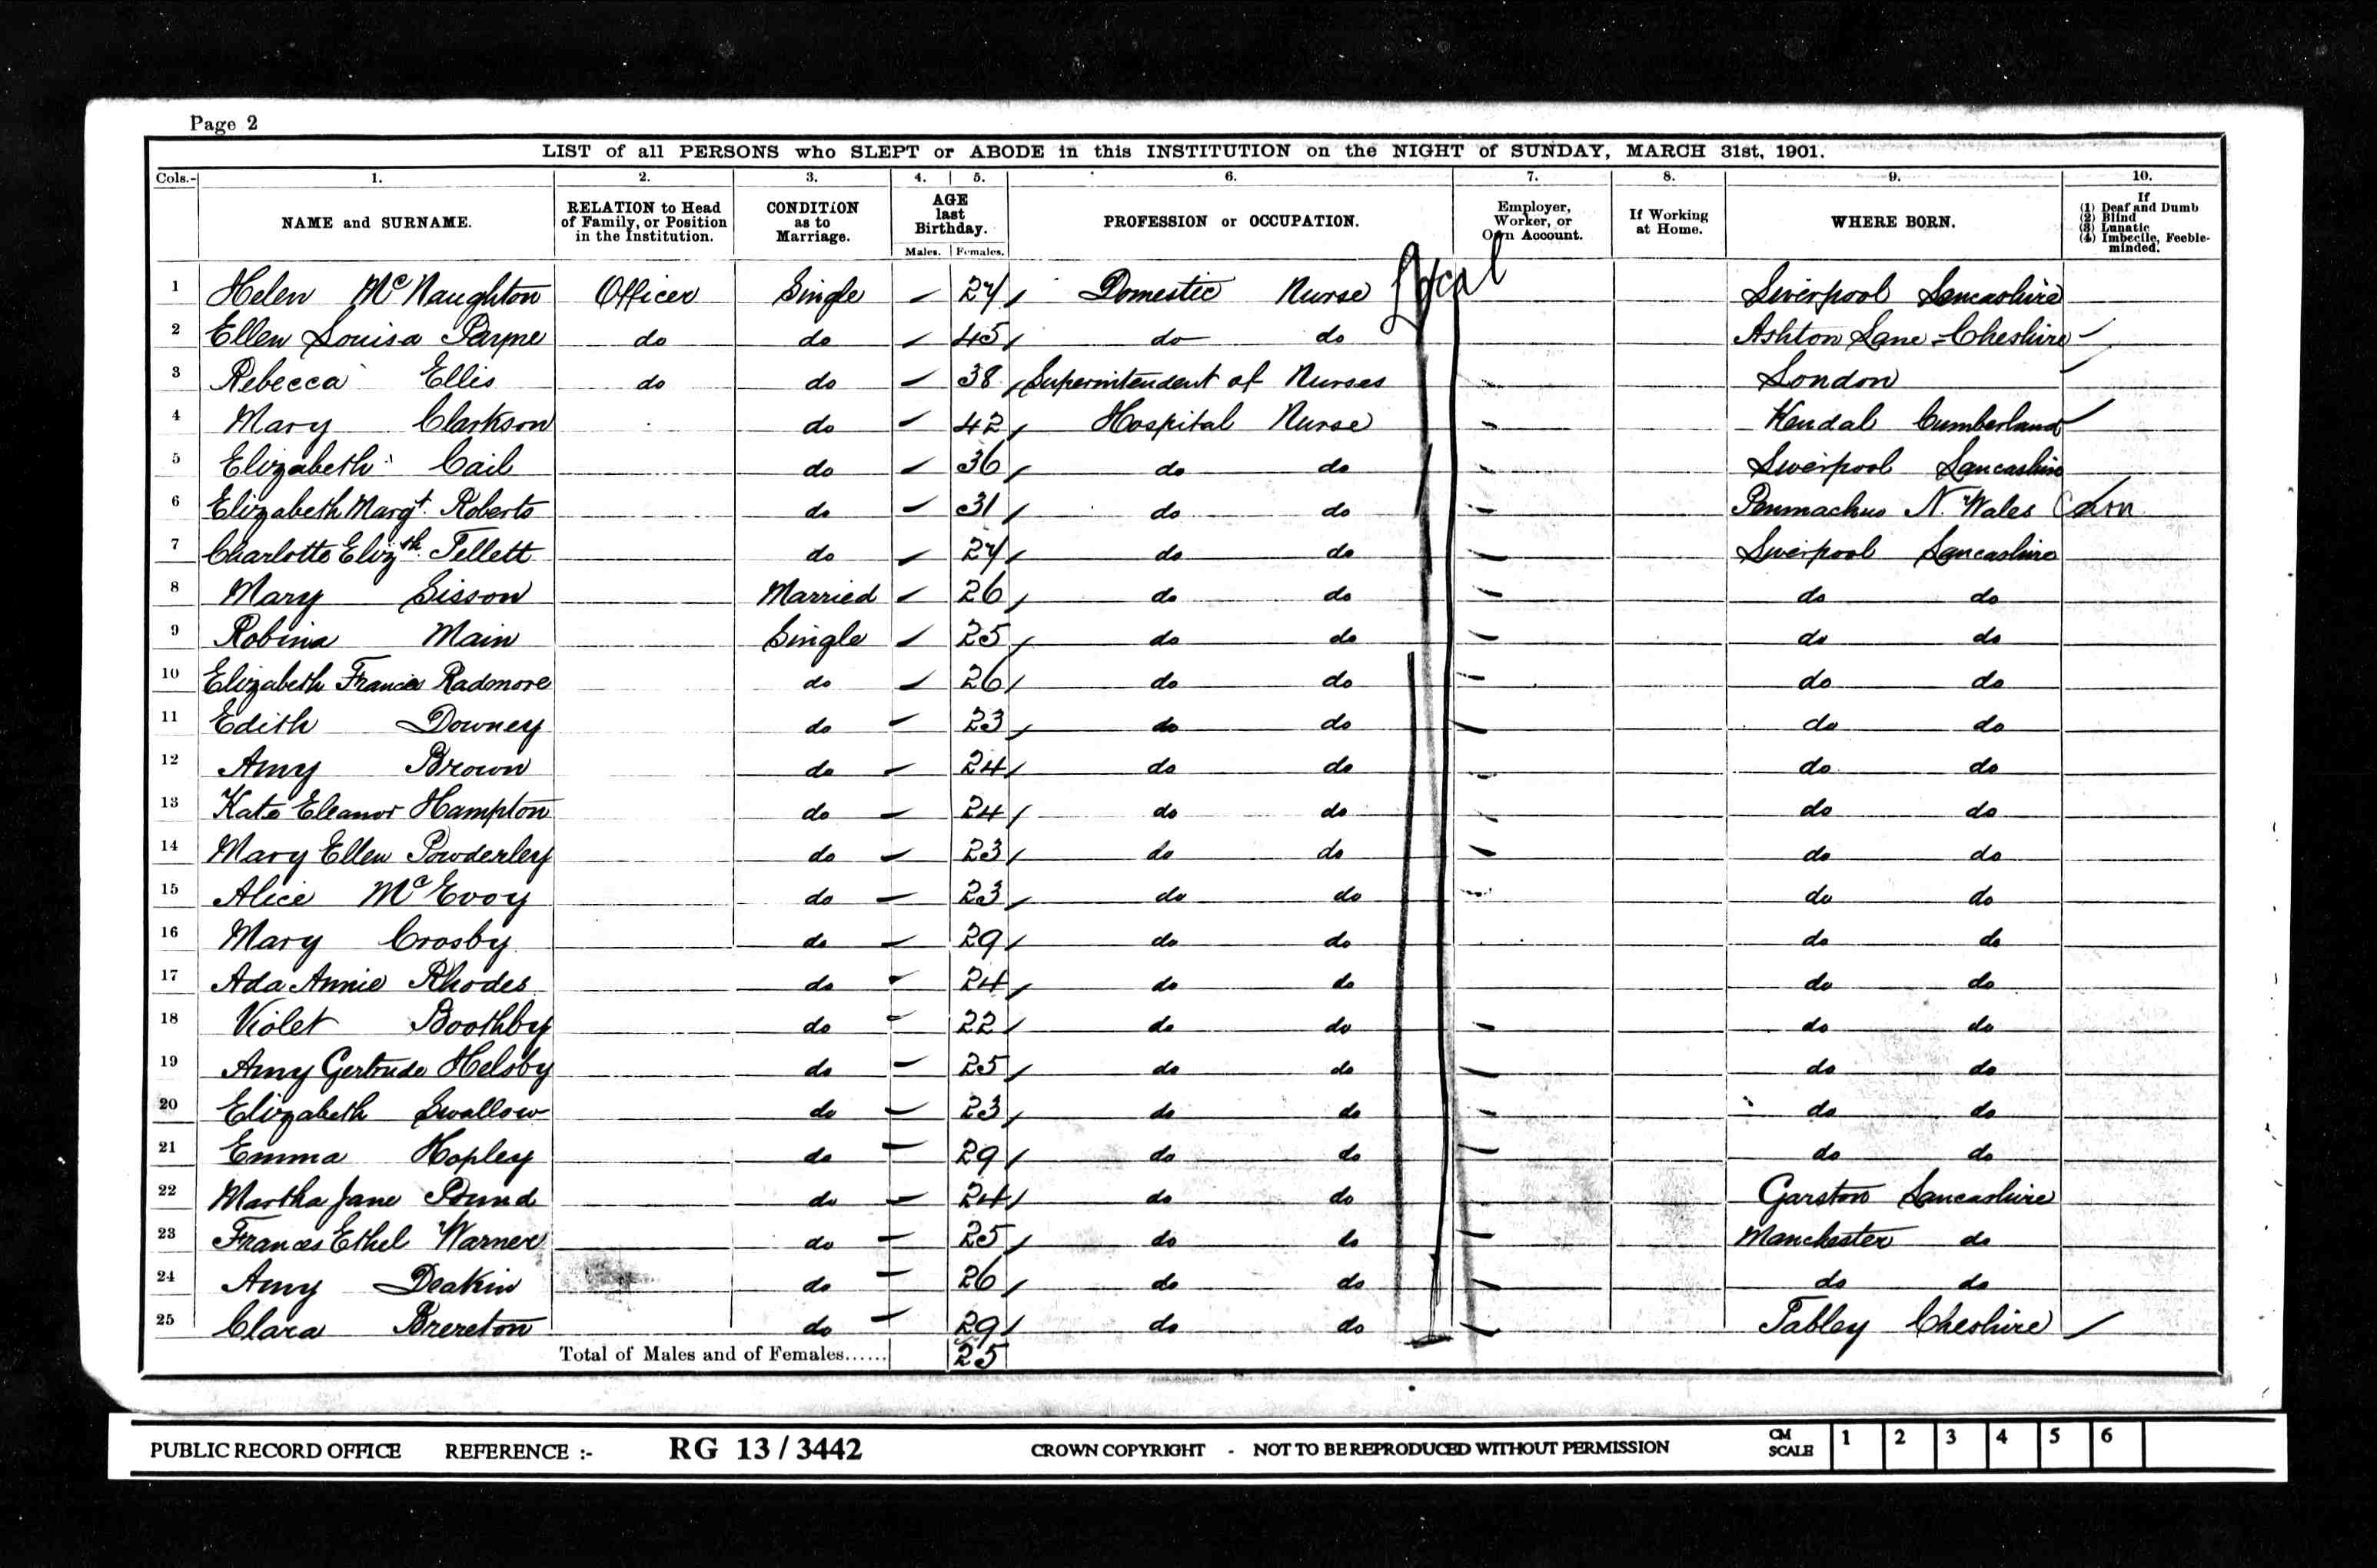 Page 2
LIST of all PERSONS who SLEPT or ABODE in this INSTITUTION on the NIGHT of SUNDAY, MARCH 31st, 1901.
Cols.- 1. 2. 3. 4. 5. 6. 7. 8. 9. 10.
NAME and SURNAME. RELATION to Head of Family, or Position in the Institution. CONDITION as to Marriage. AGE last Birthday. Males. Females. PROFESSION or OCCUPATION. Employer, Worker, or Own Account. If Working at Home. WHERE BORN. If (1) Deaf and Dumb (2) Blind (3) Lunatic (4) Imbecile, Feeble-minded.
1 Helen Mc Naughton Officer Single 27 Domestic Nurse Liverpool Lancashire
2 Ellen Louisa Payne do do 45 do do Ashton Lane = Cheshire
3 Rebecca Ellis do do 38 Superintendent of Nurses London
4 Mary Clarkson do 42 Hospital Nurse Kendal Cumberland
5 Elizabeth Cail do 36 do do Liverpool Lancashire
6 Elizabeth Margt. Roberts do 31 do do Penmachno N. Wales
7 Charlotte Elizth. Tellett do 27 do do Liverpool Lancashire
8 Mary Sisson Married 26 do do do do
9 Robina Main Single 25 do do do do
10 Elizabeth Frances Radmore do 26 do do do do
11 Edith Downey do 23 do do do do
12 Amy Brown do 24 do do do do
13 Kate Eleanor Hampton do 24 do do do do
14 Mary Ellen Powderley do 23 do do do do
15 Alice Mc Evoy do 23 do do do do
16 Mary Crosby do 29 do do do do
17 Ada Annie Rhodes do 24 do do do do
18 Violet Boothby do 22 do do do do
19 Amy Gertrude Helsby do 25 do do do do
20 Elizabeth Swallow do 23 do do do do
21 Emma Hopley do 29 do do do do
22 Martha Jane Pound do 24 do do Garston Lancashire
23 Frances Ethel Warner do 25 do do Manchester do
24 Amy Deakin do 26 do do do do
25 Clara Brereton do 29 do do Tabley Cheshire
Total of Males and of Females...... 25
PUBLIC RECORD OFFICE REFERENCE :- RG 13 / 3442 CROWN COPYRIGHT - NOT TO BE REPRODUCED WITHOUT PERMISSION CM SCALE 1 2 3 4 5 6